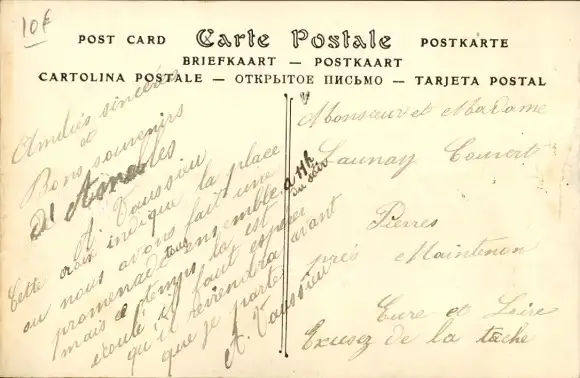 10F
POST CARD Carte Postale POSTKARTE
BRIEFKAART — POSTKAART
CARTOLINA POSTALE — ОТКРЫТОЕ ПИСЬМО — TARJETA POSTAL
Amitiés sincères
et
Bons souvenirs
D'
A. Vaussieu
Cette croix indique la place
ou nous avons fait une
promenade tous ensemble à 11h du soir
mais ce temps la est
écoulé il faut espérer
qu'il reviendra avant
que je parte
A. Vaussieu
Monsieur et Madame
Launay Couvert
Pierres
près Maintenon
Eure et Loire
Excusez de la tâche